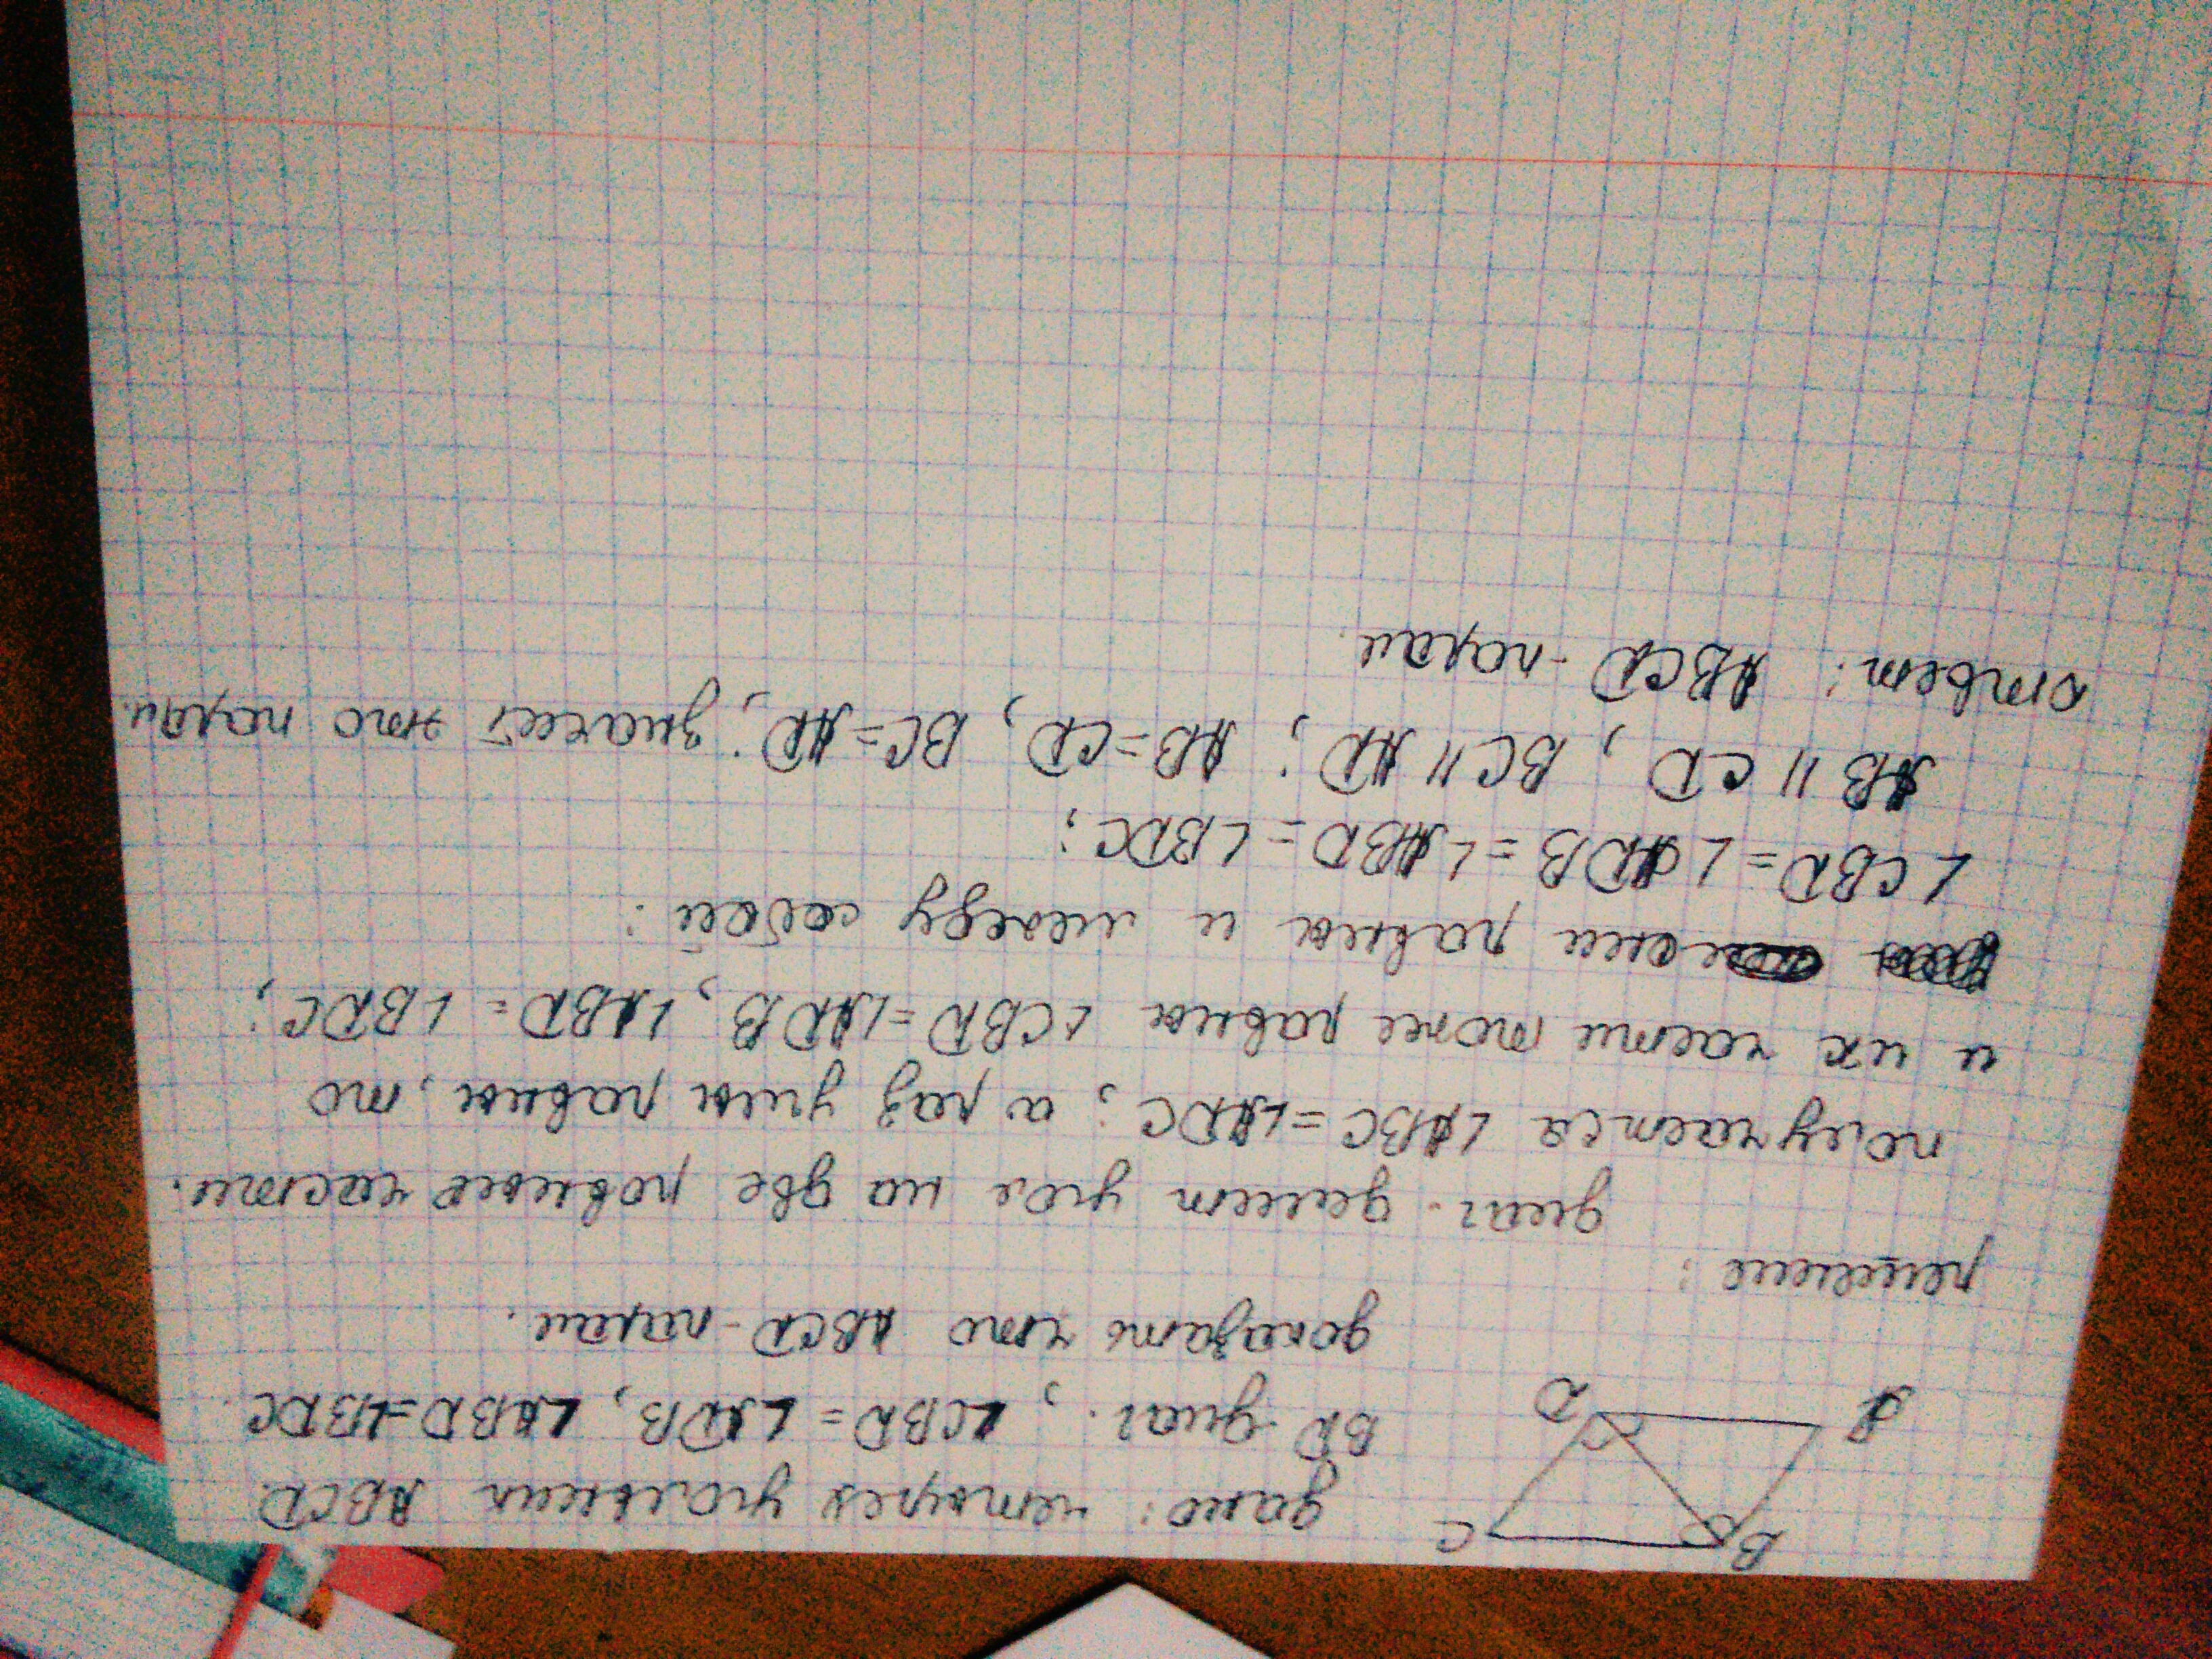 B
C
A
D
дано: четырех угольник ABCD
BD диаг.; ∠CBD = ∠ADB, ∠ABD = ∠BDC.
доказать что ABCD - парал.
решение:
диаг. делит угол на две равные части.
получается ∠ABC = ∠ADC; а раз углы равны, то
и их части тоже равны ∠CBD = ∠ADB, ∠ABD = ∠BDC;
они равны и между собой:
∠CBD = ∠ADB = ∠ABD = ∠BDC;
AB || CD, BC || AD; AB = CD, BC = AD; значит это парал.
ответ: ABCD - парал.